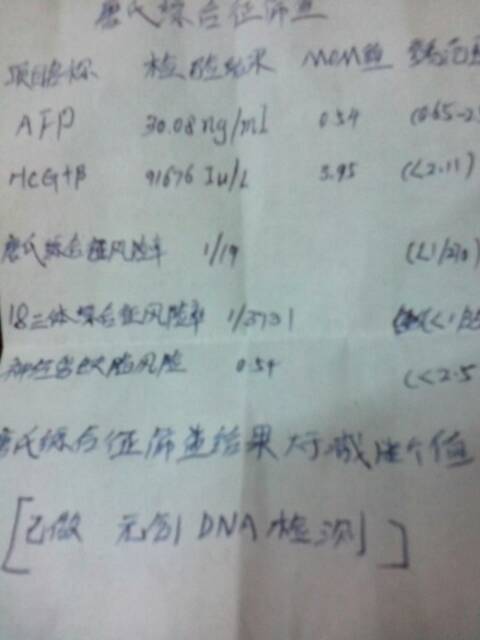 唐氏综合征筛查
项目名称 检验结果 MOM值 参考范围
AFP 30.08ng/ml 0.54 (0.65-2.5
HCG+β 91676 Iu/L 3.95 (<2.11)
唐氏综合征风险率 1/19 (<1/270)
18三体综合征风险率 1/3731 (<1/
神经管缺陷风险 0.54 (<2.5
唐氏综合征筛查结果大于截断值
[已做 无创DNA检测]